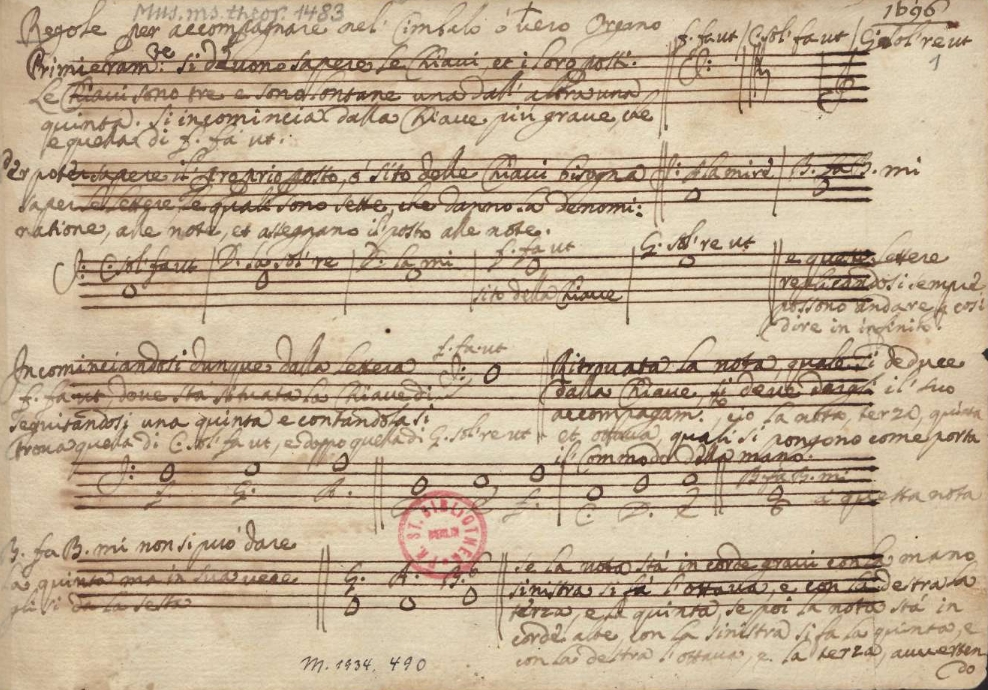 Mus. ms. theor. 1483
Regole per accompagnare nel Cimbalo ó vero Organo
1696
F. fa ut C. sol fa ut G. sol re ut
1
Primieram:te si devono sapere le Chiavi et i loro posti.
Le Chiavi sono tre e sono lontane una dall' altra una
quinta. Si incomincia dalla Chiave piú grave, che
e quella di F. fa ut.
Per poter sapere il proprio posto, ó sito delle Chiavi bisogna
A la mi re B. fa B. mi
saper le lettere, le quali sono sette, che danno la denomi:
natione, alle note, et assegnano il posto alle note.
C. sol fa ut D. la sol re E. la mi F. fa ut G. sol re ut
sito della Chiave
e queste lettere
replicandosi sempre
possono andare p cosi
dire in infinito.
Incominciandosi dunque dalla lettera
F. fa ut
F. fa ut dove sta situata la Chiave di
seguitandosi una quinta e contandola si
trova quella di C. sol fa ut, e doppo quella di G. sol re ut
Ritrovata la nota, quale si deduce
dalla Chiave, si deve dargli il suo
accompagam:to cio la nota terza, quinta
et ottava, quali si pongono come porta
il Commodo della mano.
F. G. A. C. D. E.
B. fa B. mi
á questa nota
B. fa B. mi non si puó dare
la quinta ma in sua vece
gli si dá la sesta
G. A. B.
se la nota stá in corde gravi con la mano
sinistra si fá l'ottava, e con la destra la
terza, e la quinta se poi la nota stá in
corde alte con la sinistra si fa la quinta, e
con la destra l'ottava e la terza, avverten
do
PR. ST. BIBLIOTHEK BERLIN
M. 1934. 490